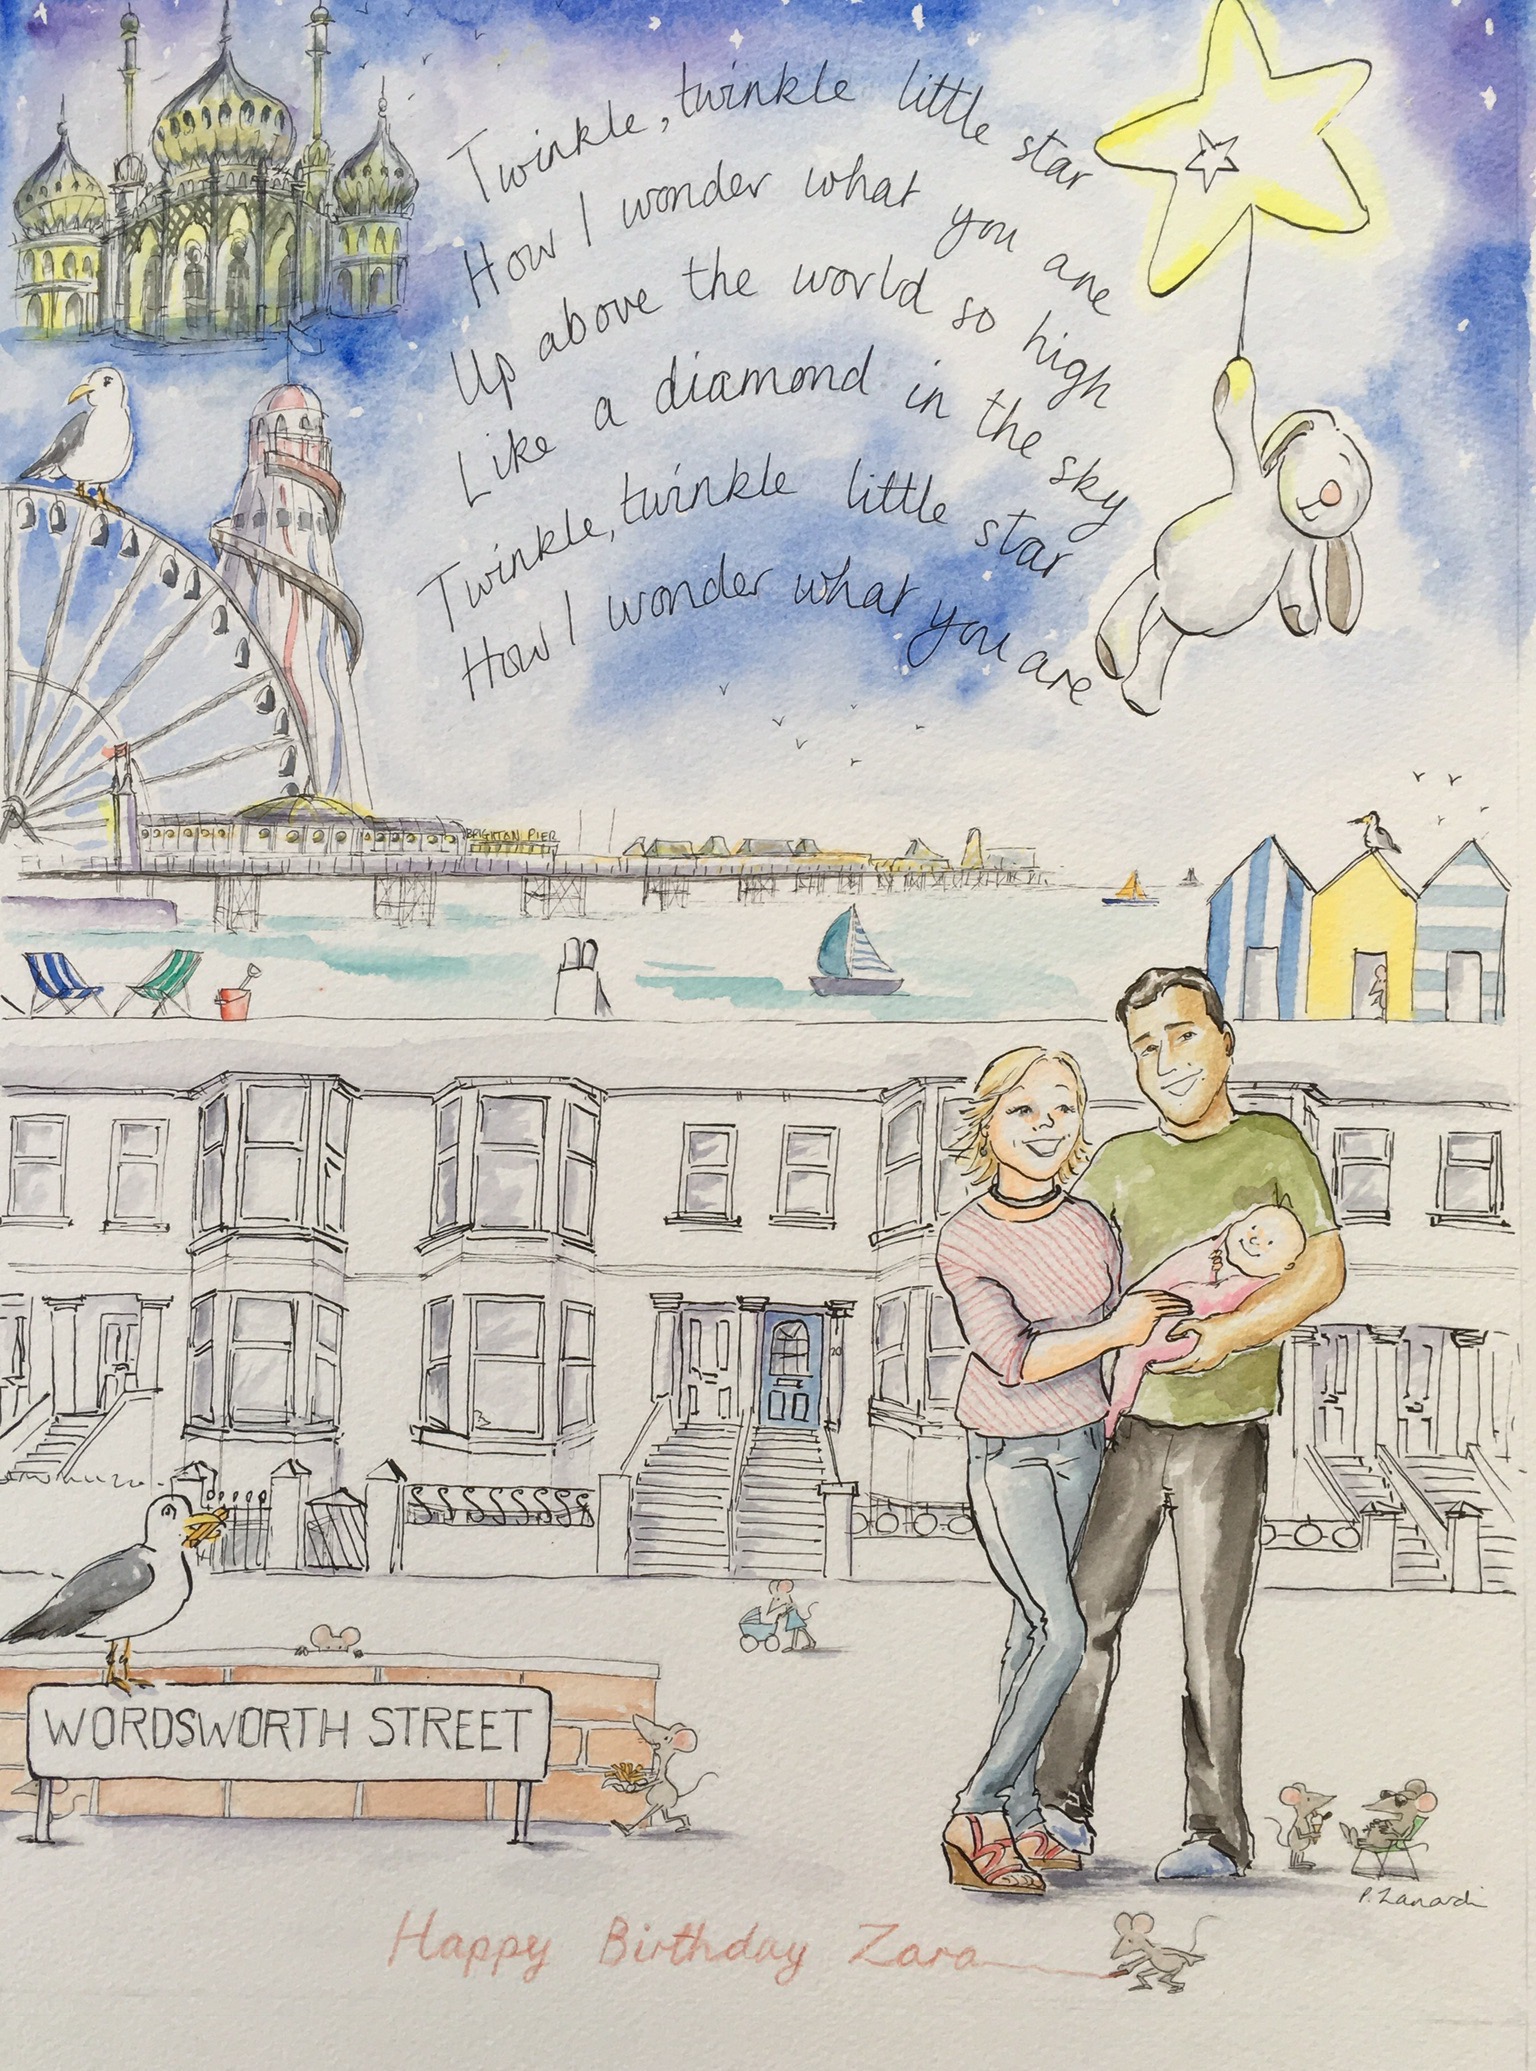 Twinkle, twinkle little star
How I wonder what you are
Up above the world so high
Like a diamond in the sky
Twinkle, twinkle little star
How I wonder what you are
BRIGHTON PIER
20
WORDSWORTH STREET
P. Zanardi
Happy Birthday Zara